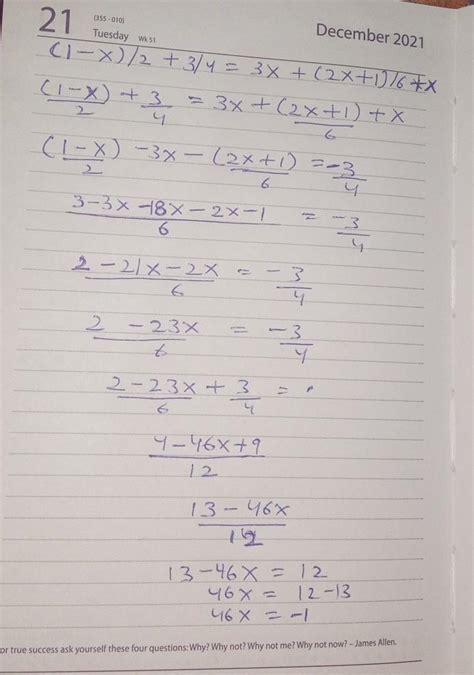 21 (355 - 010)
Tuesday Wk 51
December 2021
(1-x)/2 + 3/4 = 3x + (2x+1)/6 + x
(1-x)/2 + 3/4 = 3x + (2x+1)/6 + x
(1-x)/2 - 3x - (2x+1)/6 = -3/4
3-3x-18x-2x-1/6 = -3/4
2-21x-2x/6 = -3/4
2-23x/6 = -3/4
2-23x/6 + 3/4 =
4-46x+9/12
13-46x/12
13-46x = 12
46x = 12-13
46x = -1
or true success ask yourself these four questions: Why? Why not? Why not me? Why not now? – James Allen.